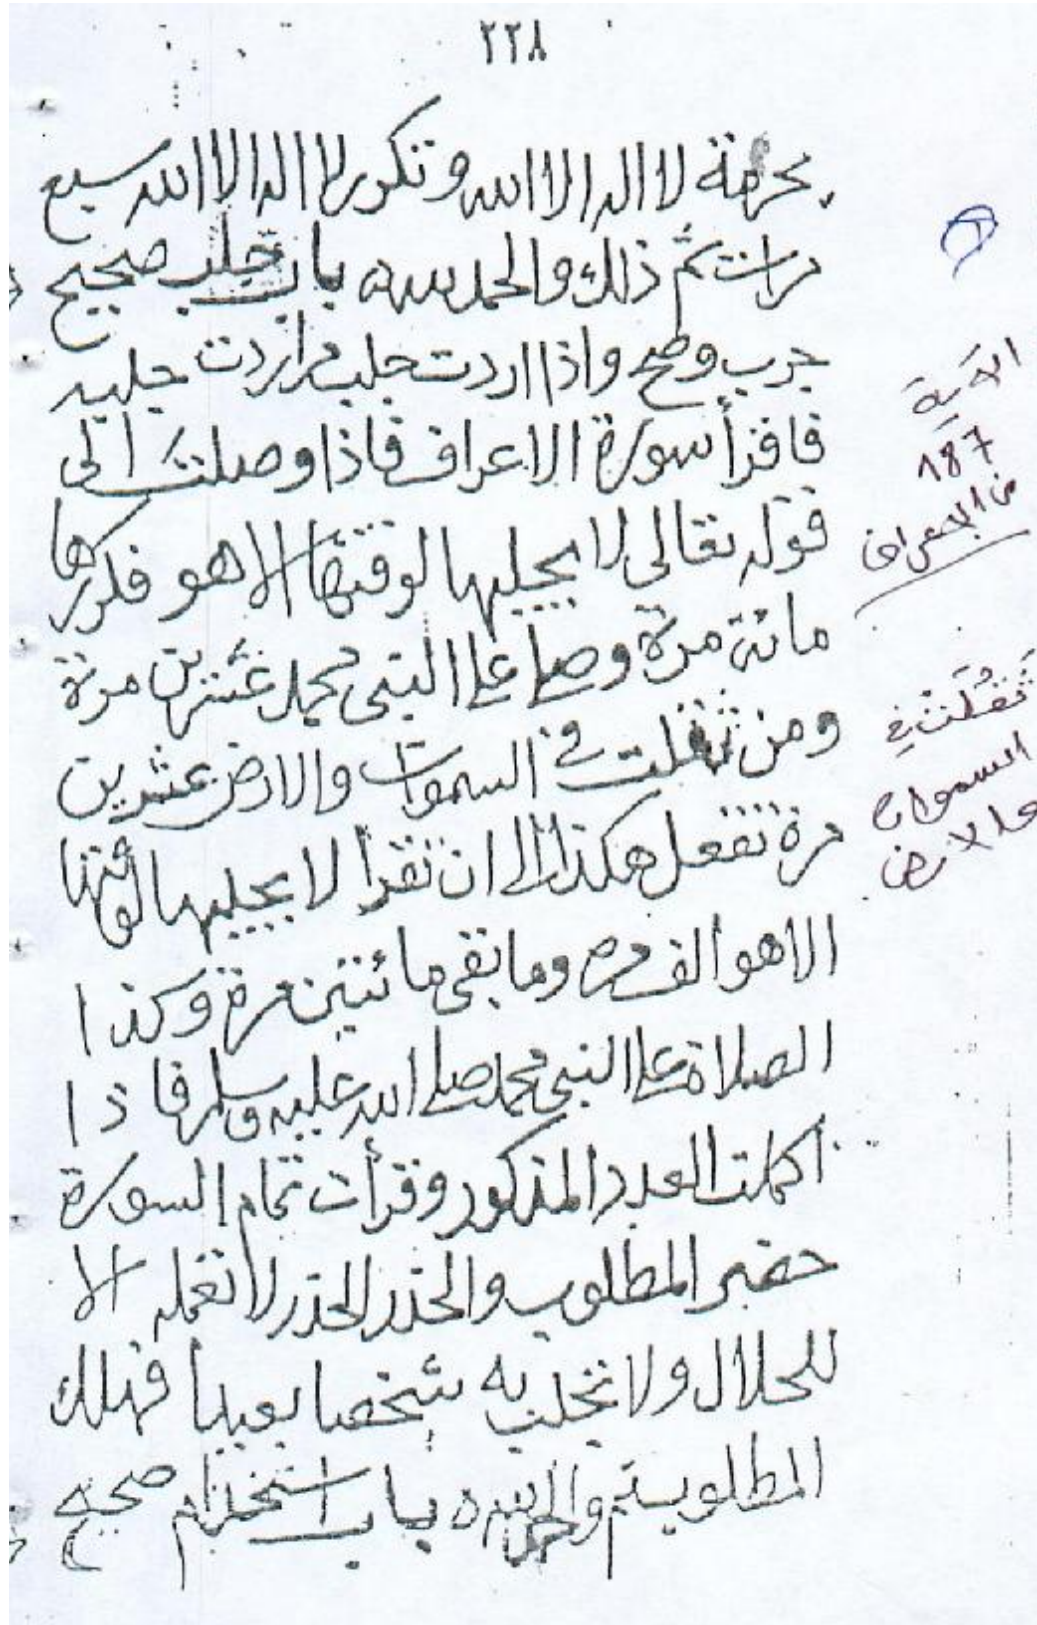 ٢٢٨
بحرمة لا اله الا الله وتكرر لا اله الا الله سبع
مرات تم ذلك والحمد لله باب جلب صحيح
جرب وصح واذا اردت جلب من اردت جلبه
فاقرأ سورة الاعراف فاذا وصلت الى
قوله تعالى لا يجليها لوقتها الا هو فكررها
مائة مرة وصل على النبى محمد عشرين مرة
ومن ثقلت في السموات والارض عشرين
مرة تفعل هكذا الى ان تقرأ لا يجليها لوقتها
الا هو الف مره وما بقى مائتين مرة وكذا
الصلاة على النبى محمد صلى الله عليه وسلم فاذا
اكملت العدد المذكور وقرأت تمام السورة
حضر المطلوب والحذر الحذر لا تعمله الا
للحلال ولا تجلب به شخصا بعيدا فهلك
المطلوب تم والحمد لله باب استخدام صحيح
الآية
187
من الاعراف
ثَقُلَتْ في
السموات
والارض